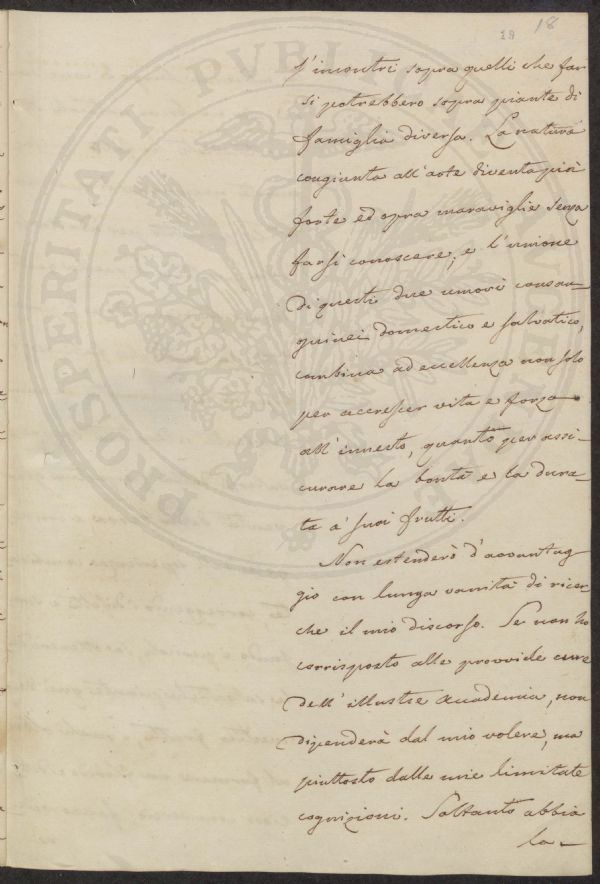 18
l'incontri sopra quelli che far
si potrebbero sopra piante di
famiglia diversa. La natura
congiunta all'arte diventa più
forte ed opra maraviglie senza
farsi conoscere, e l'unione
di questi due umori consan-
guinei domestico e salvatico,
combina ad eccellenza non solo
per accrescer vita e forza
all'innesto, quanto per assi-
curare la bontà e la dura-
ta a' suoi frutti.
Non estenderò d'avvantag
gio con lunga vanità di ricer-
che il mio discorso. Se non ho
corrisposto alle provvide cure
dell'illustre Accademia, non
dipenderà dal mio volere, ma
piuttosto dalle mie limitate
cognizioni. Soltanto abbia
la-
PROSPERITATI PVBLI